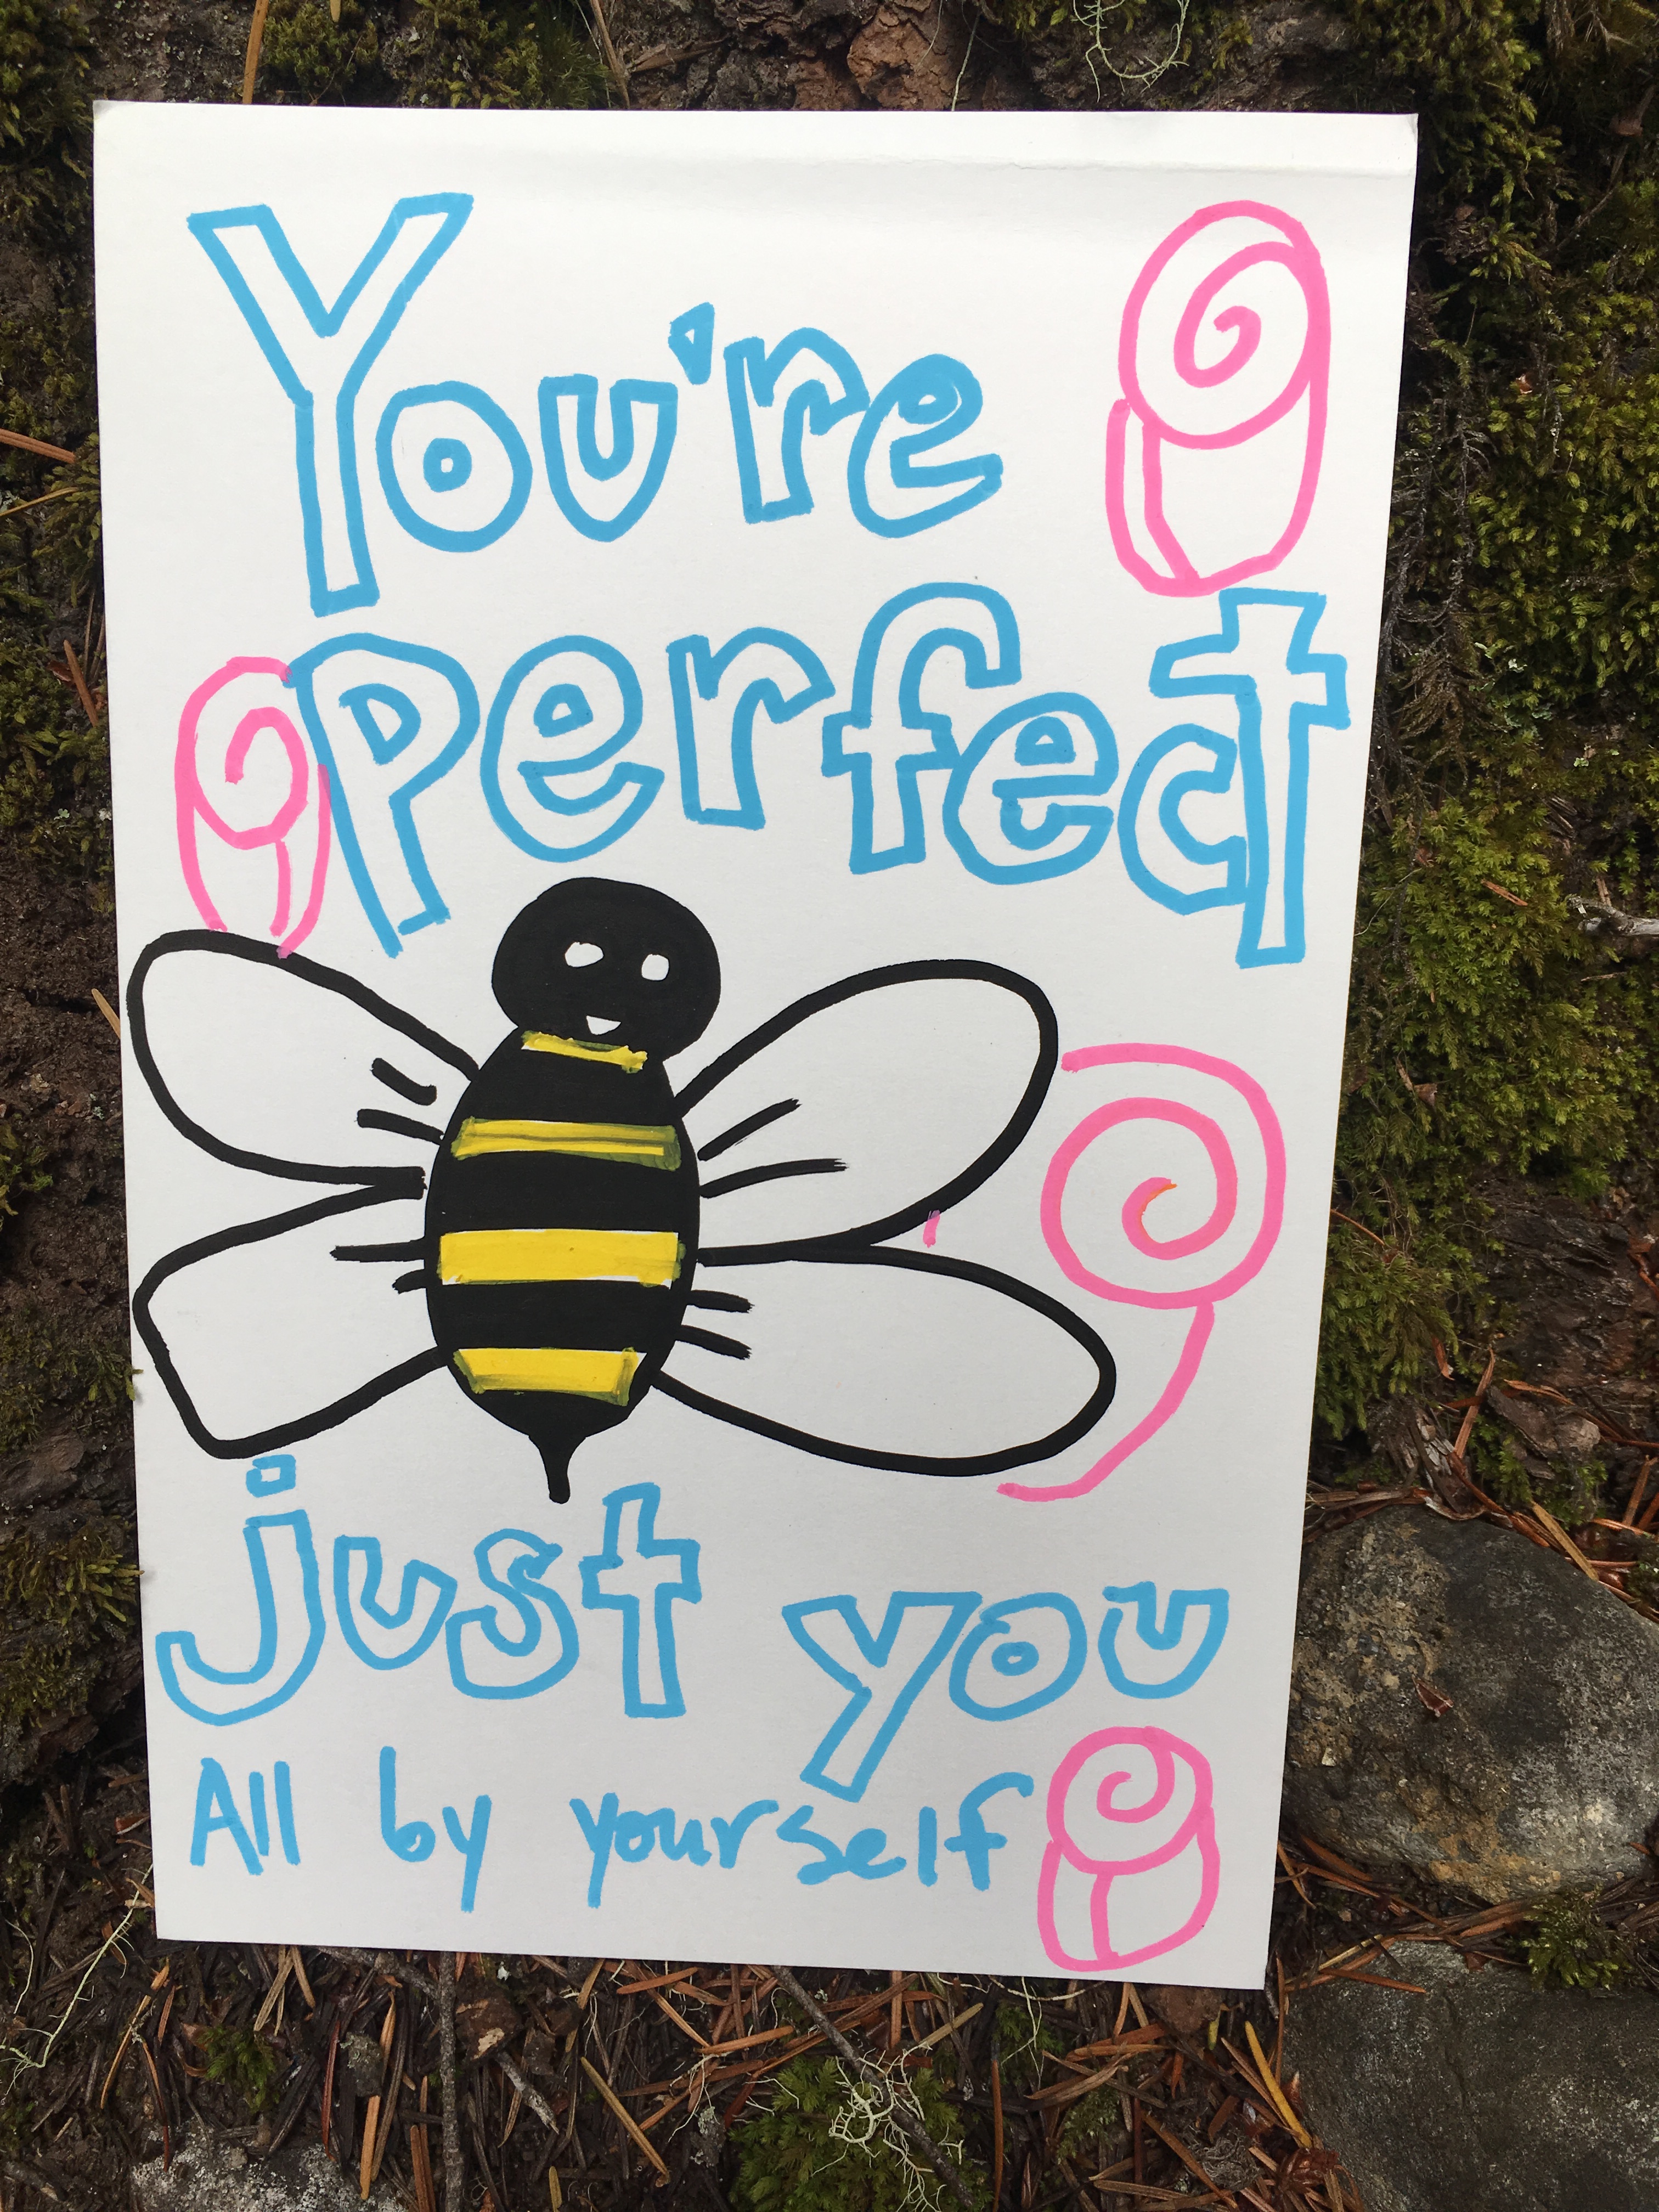 You're
Perfect
just you
All by yourself